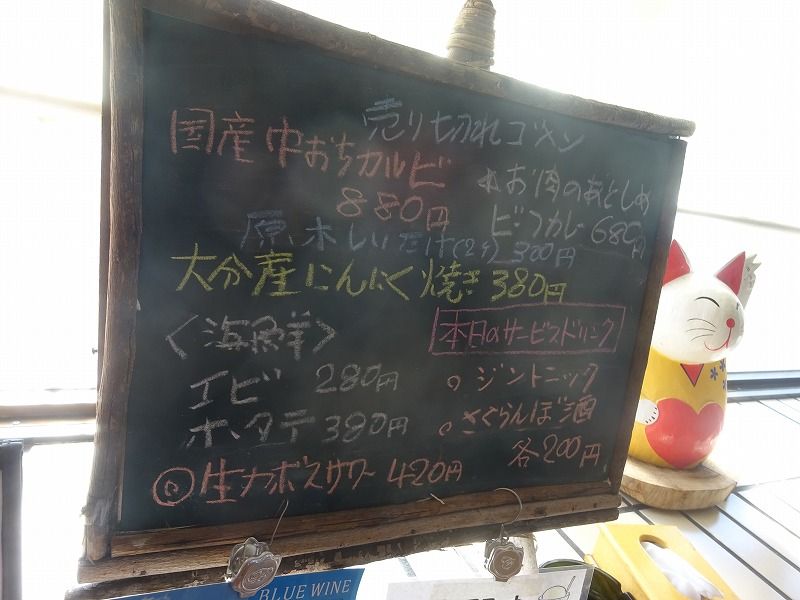 売り切れゴメン
国産中おちカルビ
880円
お肉のあとしめ
ビーフカレー 680円
原木しいたけ(2ケ) 300円
大分産にんにく焼き 380円
<海鮮>
エビ 280円
ホタテ 380円
◎生カボスサワー 420円
本日のサービスドリンク
○ ジントニック
○ さくらんぼ酒
各200円
BLUE WINE